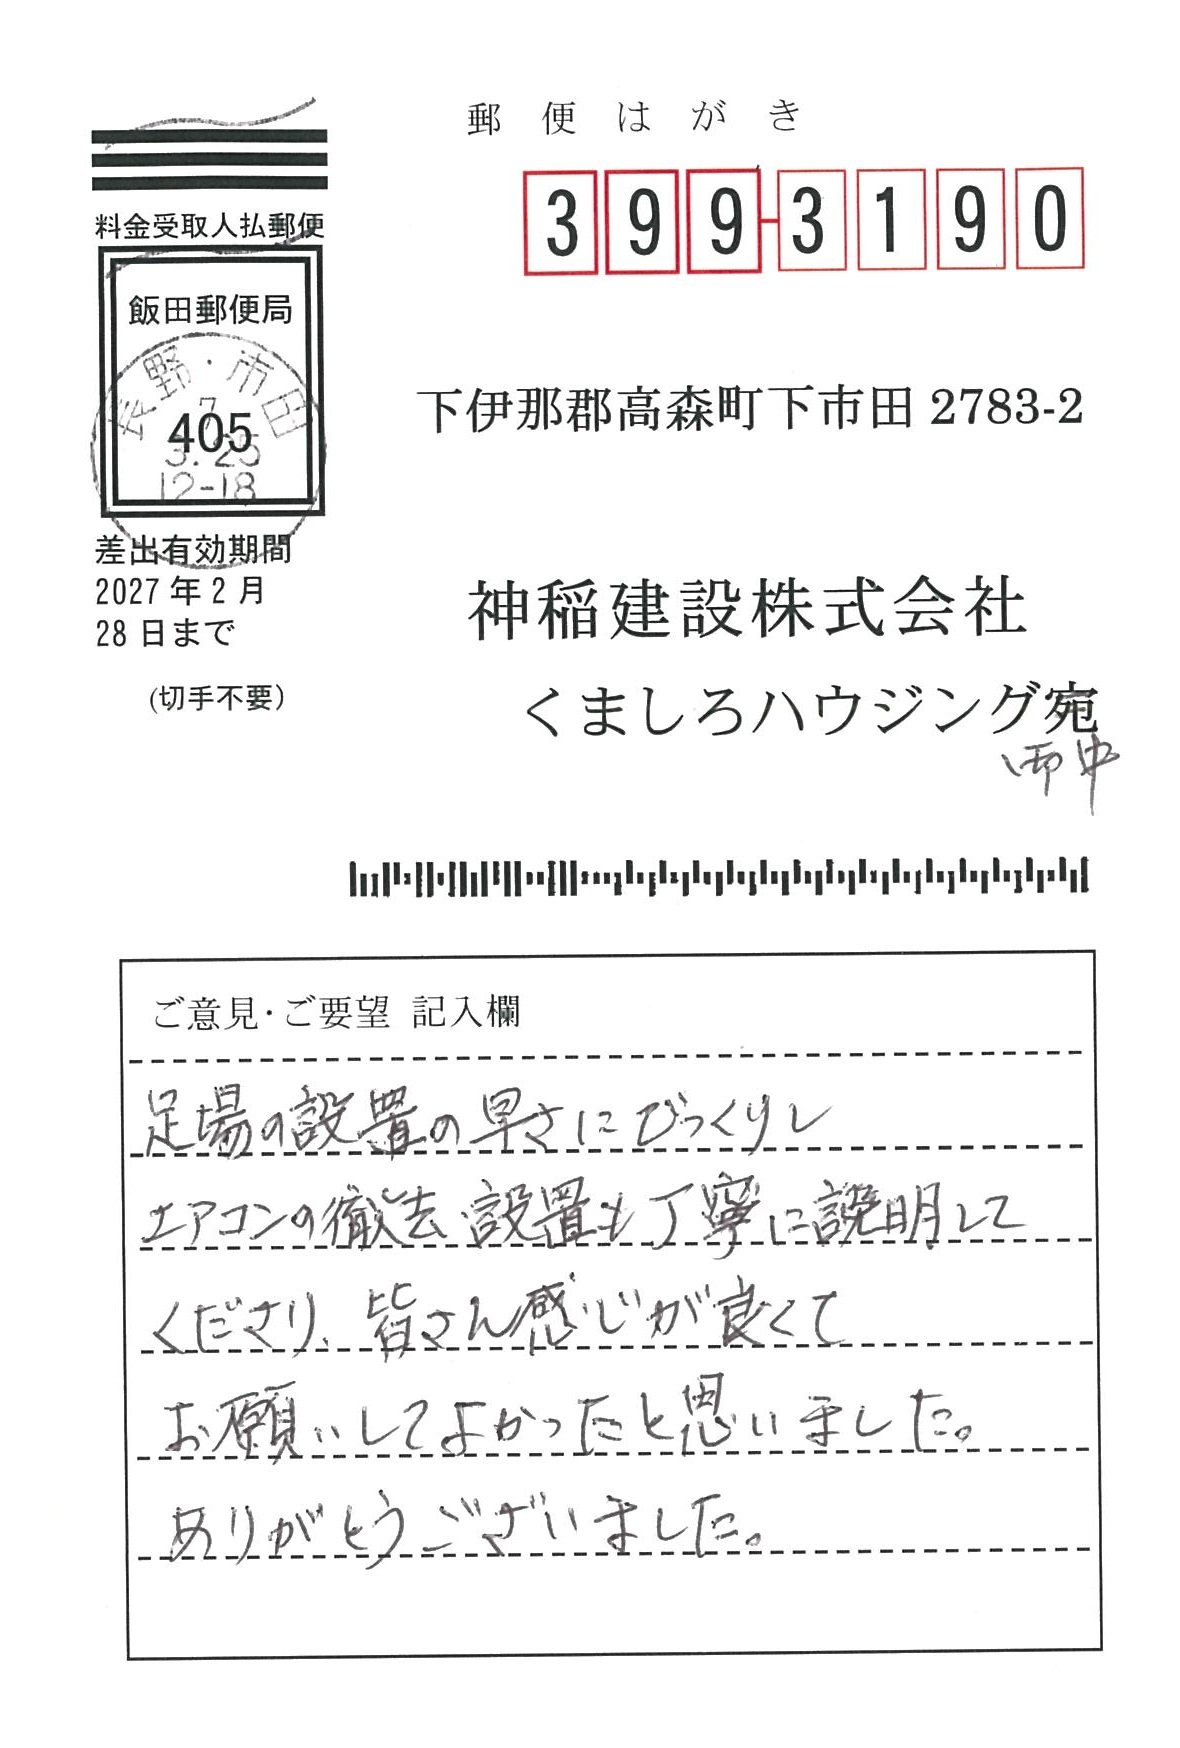 郵便はがき
料金受取人払郵便
399-3190
飯田郵便局
長野・市田
7
405
3.25
12-18
下伊那郡高森町下市田 2783-2
差出有効期間
2027年2月
28日まで
(切手不要)
神稲建設株式会社
くましろハウジング宛
御中
ご意見・ご要望 記入欄
足場の設置の早さにびっくりし
エアコンの撤去・設置も丁寧に説明して
くださり、皆さん感じが良くて
お願いしてよかったと思いました。
ありがとうございました。